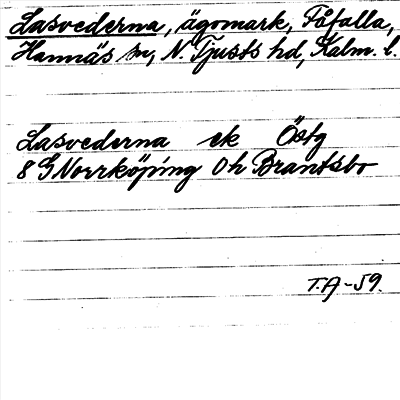 Lasvederna, ägomark, Fåfalla,
Hannäs sn, N. Tjusts hd, Kalm. l.
Lasvederna ek Östg
8 G Norrköping Oh Brantsbo
T.A-59.